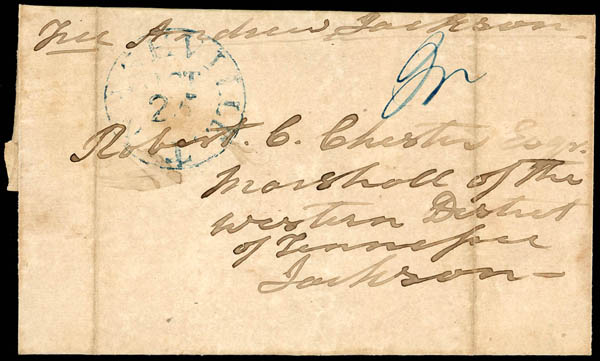 Free Andrew Jackson
OCT
Robert. C. Chester Esqr.
Marshall of the
western District
of Tennessee
Jackson